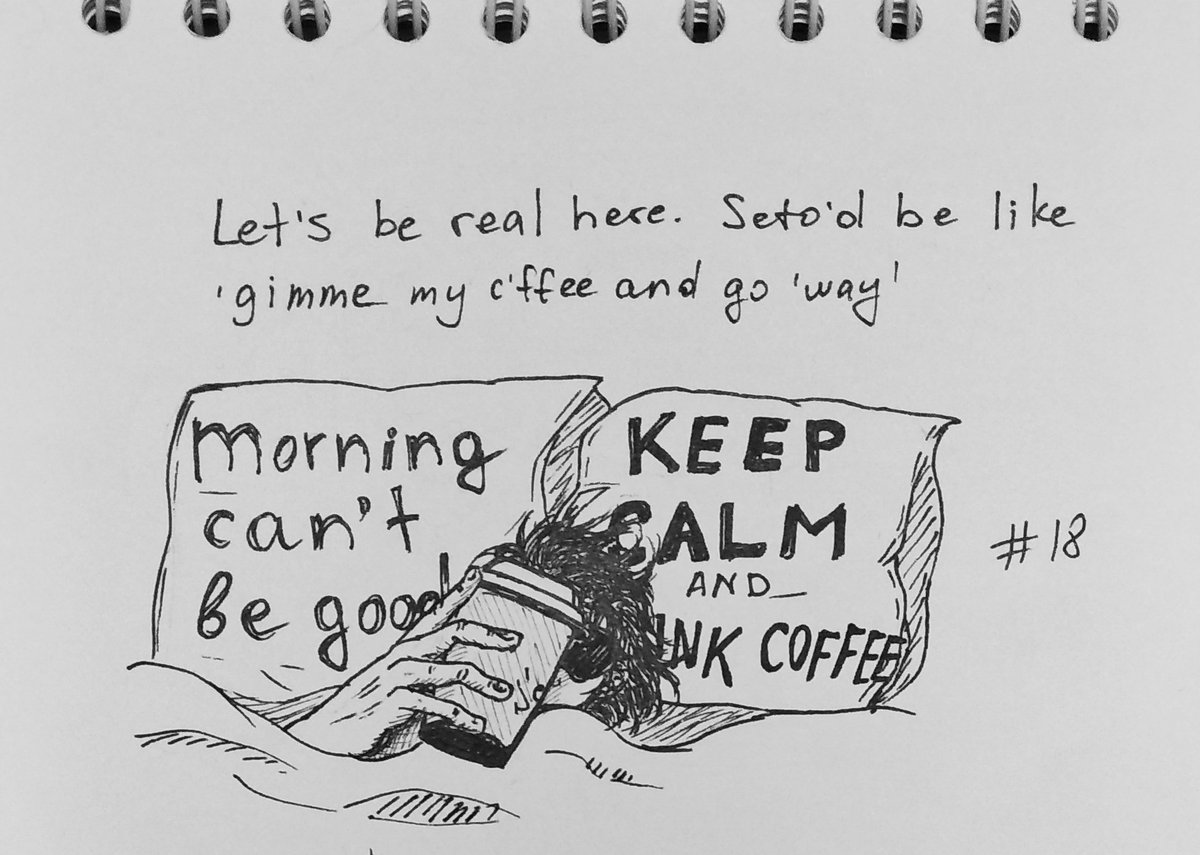 Let's be real here. Seto'd be like
'gimme my c'ffee and go 'way'
morning
can't
be good
KEEP
CALM
AND_
INK COFFEE
#18